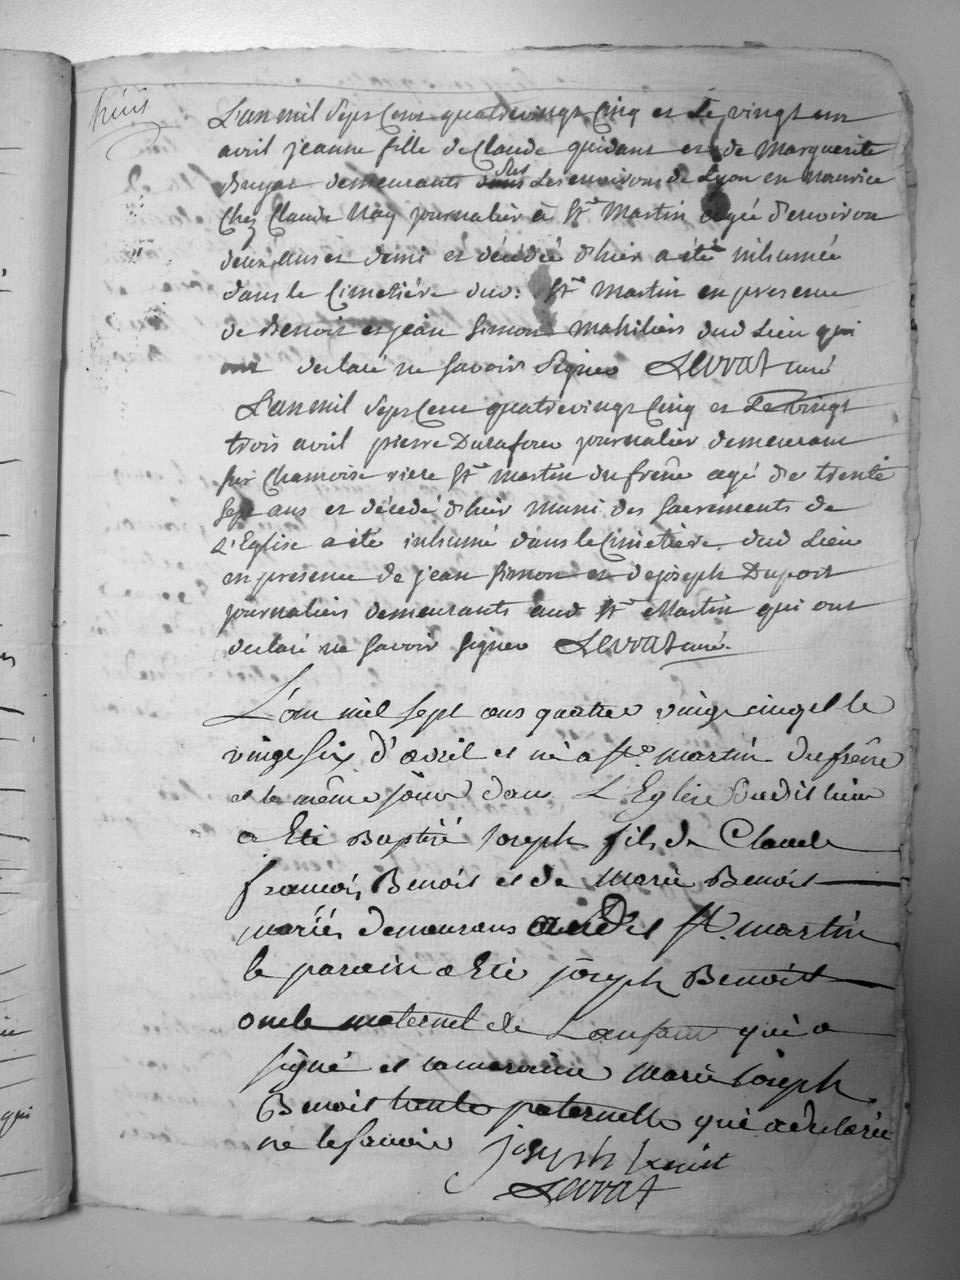 huit
L'an mil sept Cent quatrevingt Cinq et Le vingt un
avril jeanne fille de Claude quidant et de Marguerite
demeurants dans Les environs de Lyon en nourice
Chez Claude Nay journalier à St Martin agée d'environ
deux ans et demi et décédée d'hier a été inhumée
dans le Cimetière dud: St Martin en presence
de Benoit et jean Simon dud Lieu qui
ont declaré ne savoir Signer Levrat curé
L'an mil Sept Cent quatrevingt Cinq et Le vingt
trois avril pierre Durafour journalier demeurant
sur Chamoise riere St Martin du frêne agé de trente
Sept ans et décédé d'hier Muni des Sacrements de
L'Eglise a été inhumé dans le Cimetière dud Lieu
en presence de jean Simon et de joseph Duport
journaliers demeurants aud St Martin qui ont
declaré ne savoir signer Levrat curé.
L'an mil sept cens quattre vingt cinq et le
vingt six d'avril est né a St. martin du frêne
et le même jour dans L'Eglise dudit lieu
a Eté Baptisé joseph fils de Claude
francois Benoit et de marie Benoit
mariés demeurans audit St. martin
le parain a Eté joseph Benoit
oncle maternel de L'enfant qui a
signé et la maraine marie joseph
Benoit tente paternelle qui a declarée
ne le savoir joseph benoit
Levrat